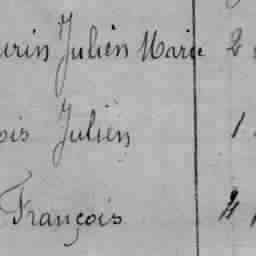 urin Julien Marie 2
ois Julien 1
François 4